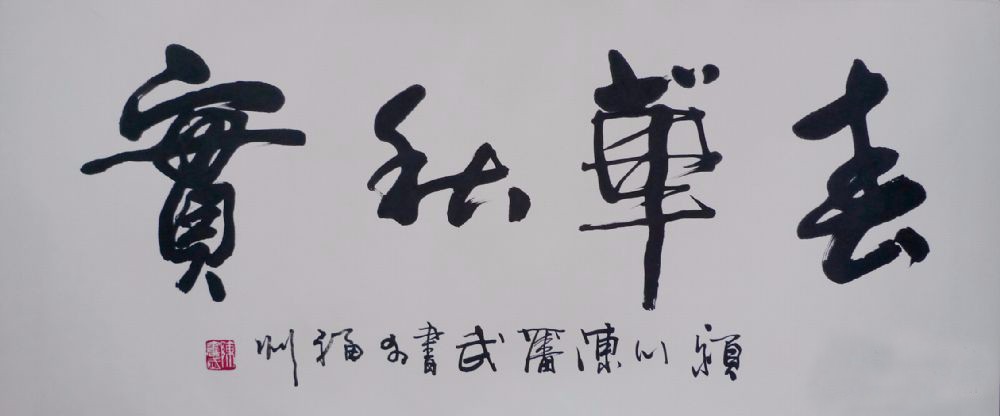 春華秋實
潁川陳奮武書於福州